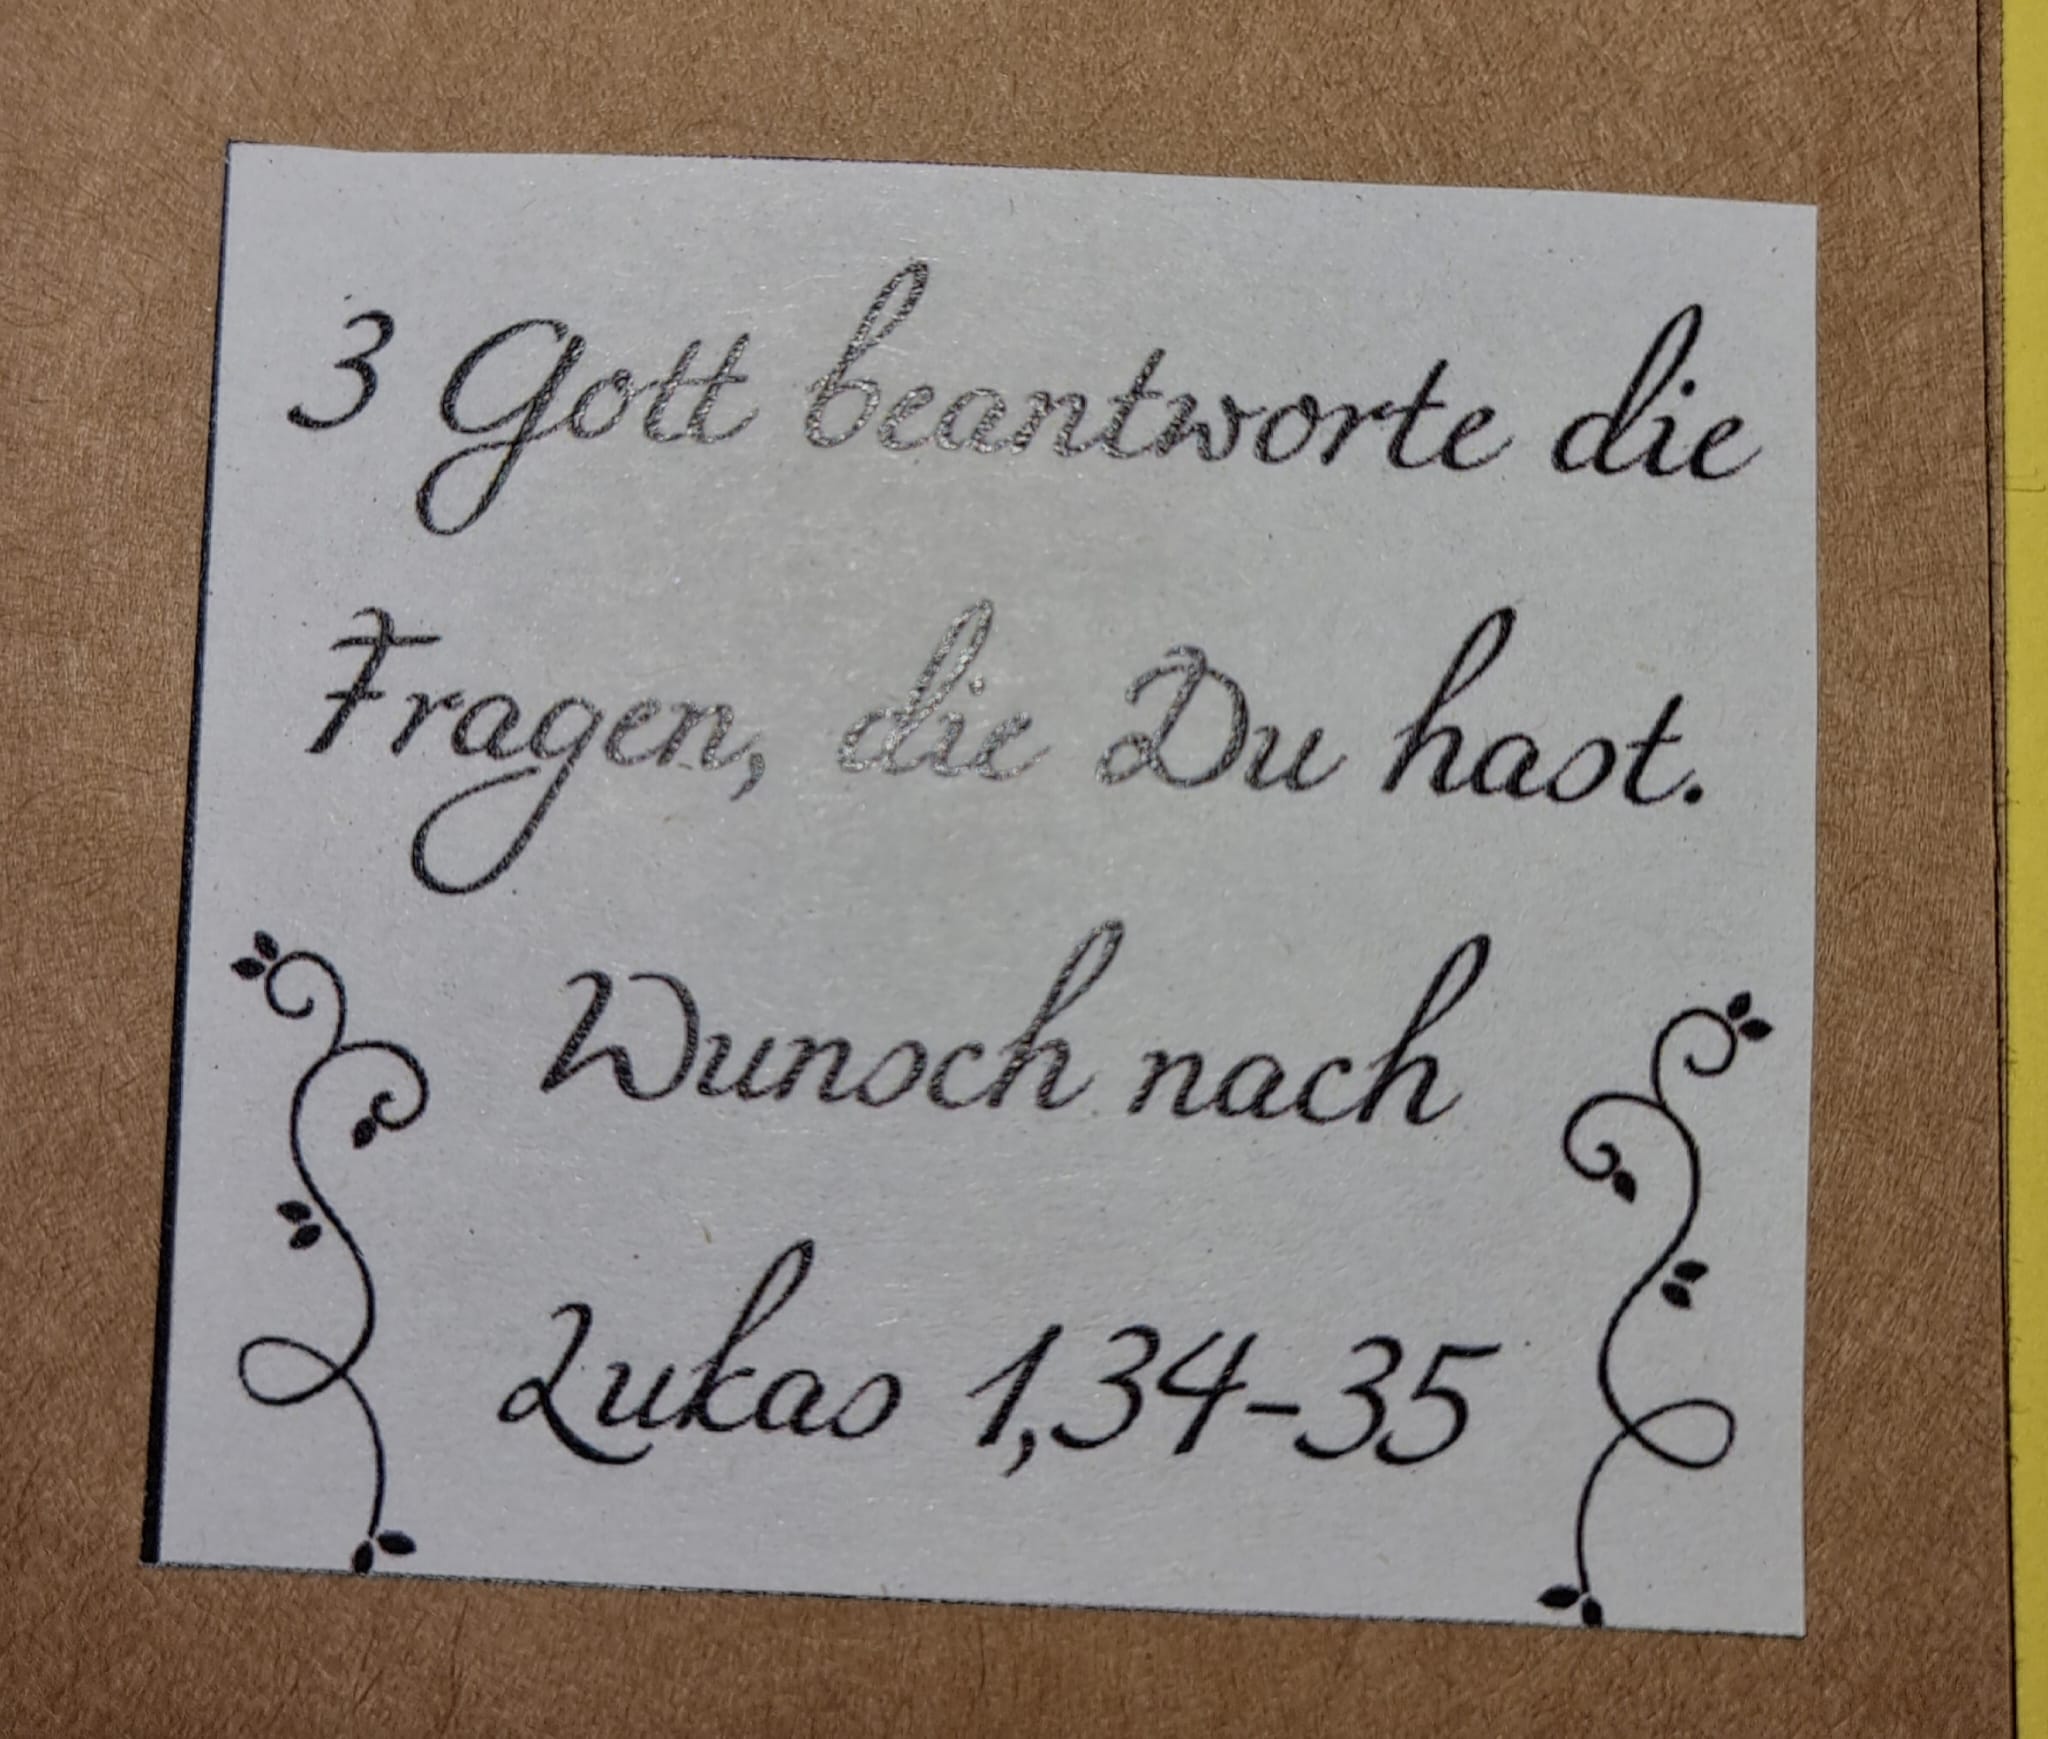 3 Gott beantworte die
Fragen, die Du hast.
Wunsch nach
Lukas 1,34-35